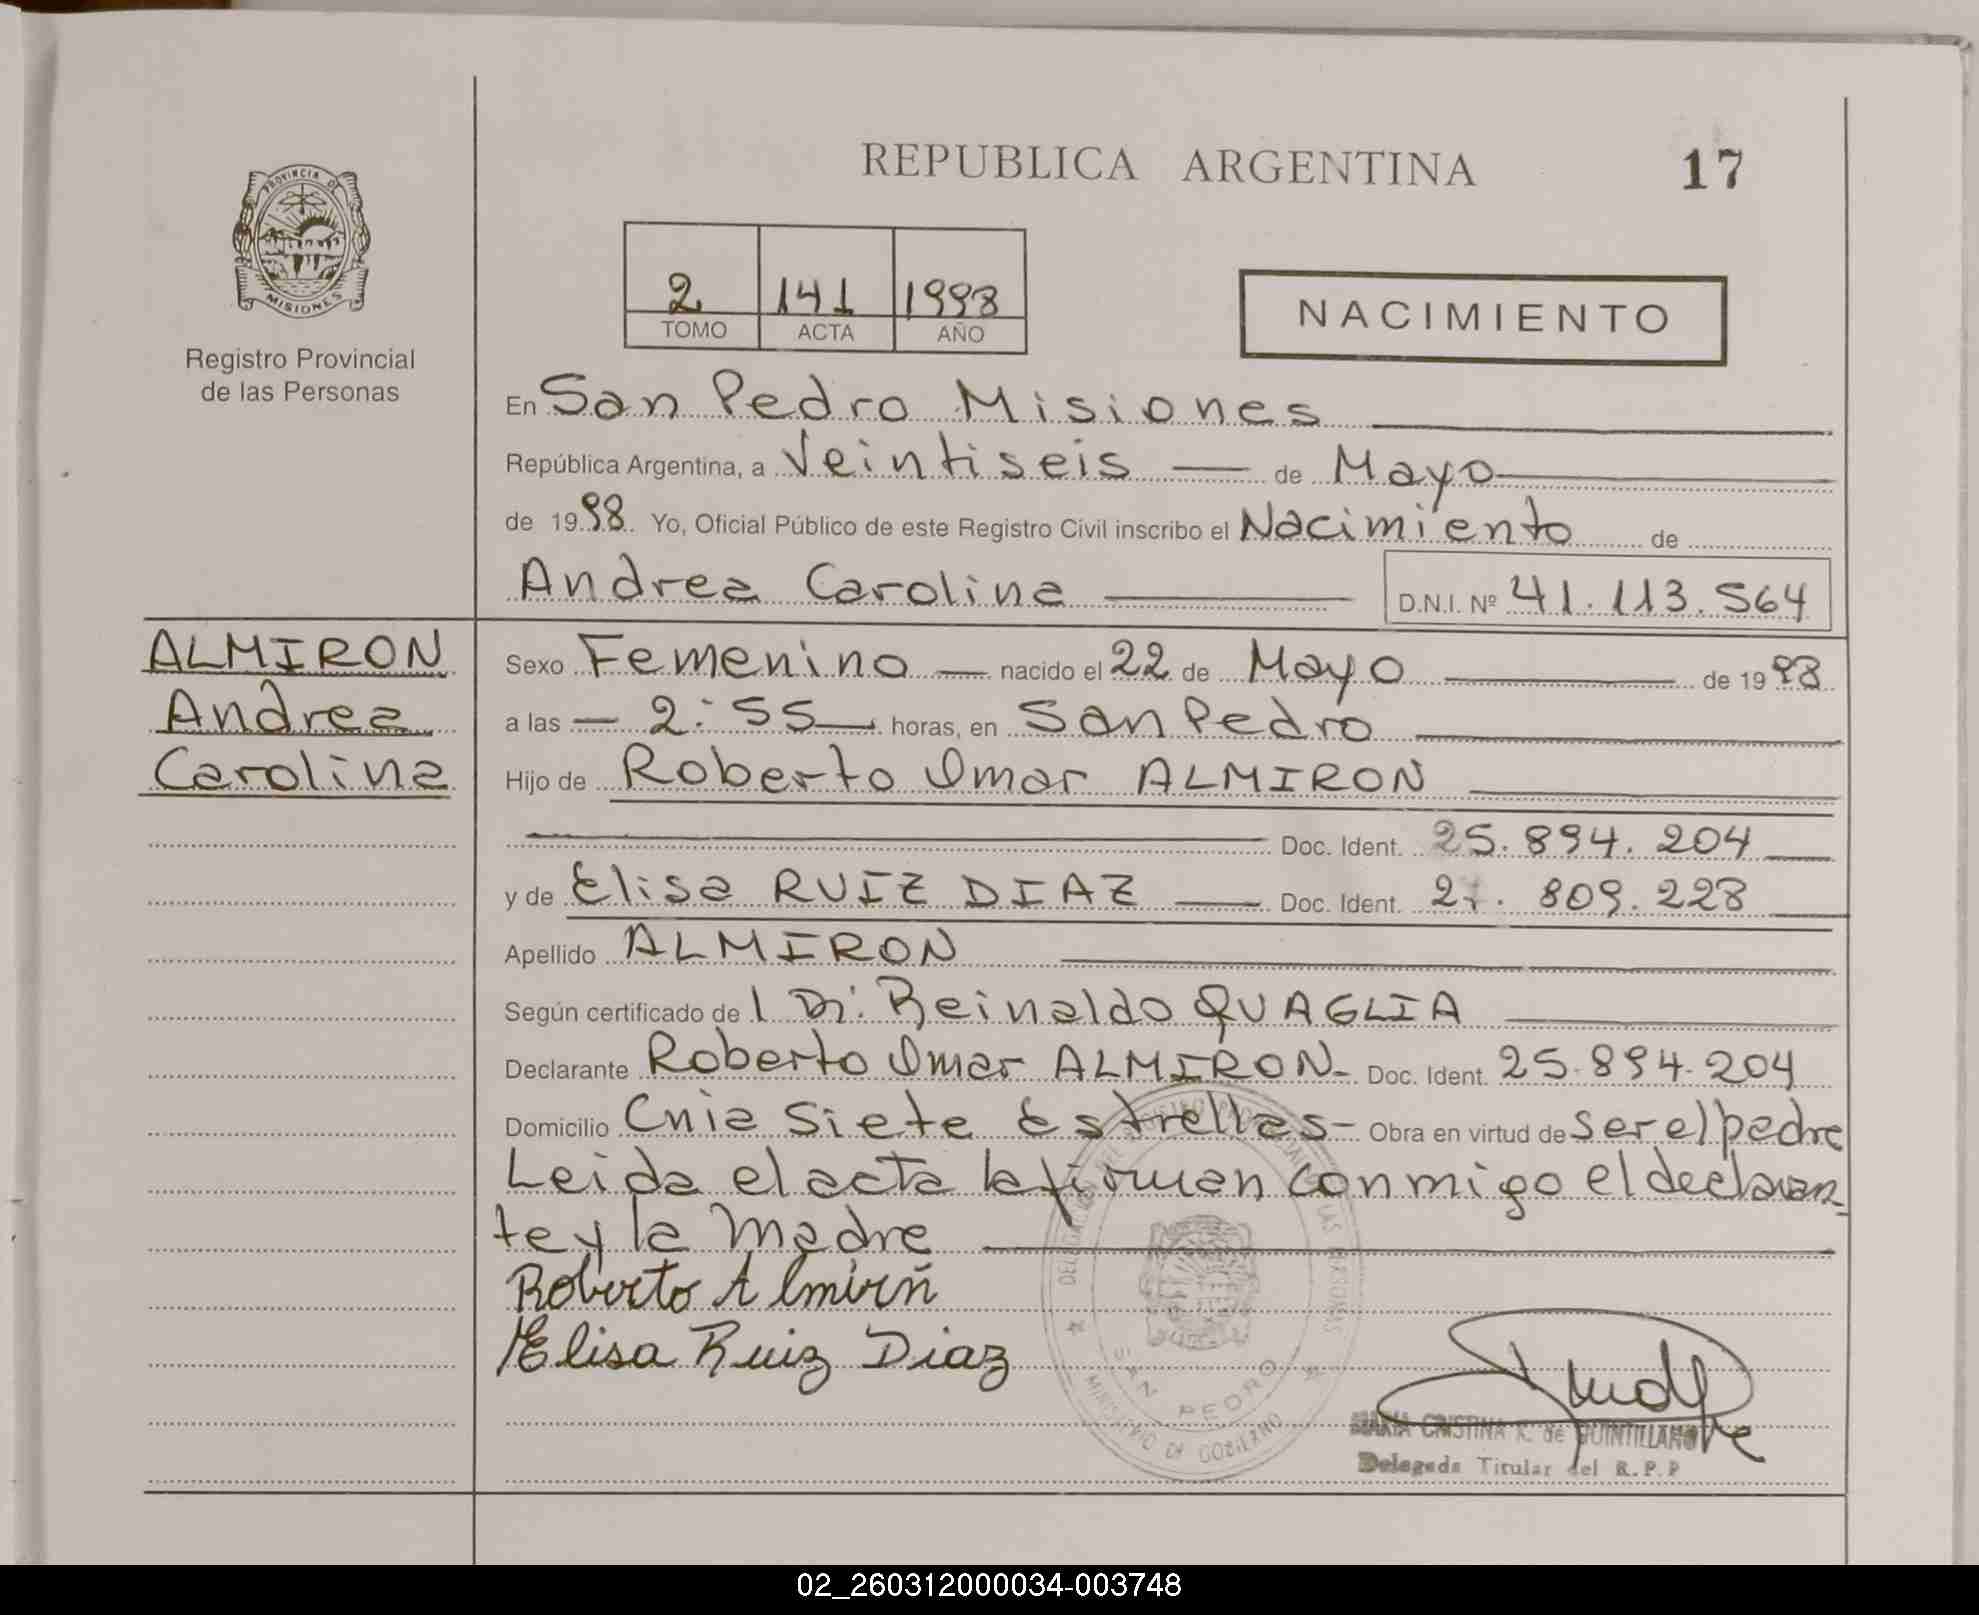 REPUBLICA ARGENTINA
17
PROVINCIA DE
MISIONES
Registro Provincial
de las Personas
2 141 1998
TOMO ACTA AÑO
NACIMIENTO
En San Pedro Misiones
República Argentina, a Veintiseis de Mayo
de 1998 Yo, Oficial Público de este Registro Civil inscribo el Nacimiento de
Andrea Carolina D.N.I. Nº 41.113.564
ALMIRON
Andrea
Carolina
Sexo Femenino nacido el 22 de Mayo de 1998
a las 2:55 horas, en San Pedro
Hijo de Roberto Omar ALMIRON
Doc. Ident. 25.894.204
y de Elisa RUIZ DIAZ Doc. Ident. 27.809.228
Apellido ALMIRON
Según certificado de l Dr. Reinaldo QUAGLIA
Declarante Roberto Omar ALMIRON- Doc. Ident. 25.894.204
Domicilio Cnia Siete Estrellas- Obra en virtud de ser el padre
Leida el acta la firman conmigo el declaran-
te y la madre
Roberto Almirñ
Elisa Ruiz Diaz
SAN PEDRO
MINISTERIO DE GOBIERNO
MARIA CRISTINA K. de QUINTILLANO
Delegada Titular del R.P.P
02_260312000034-003748